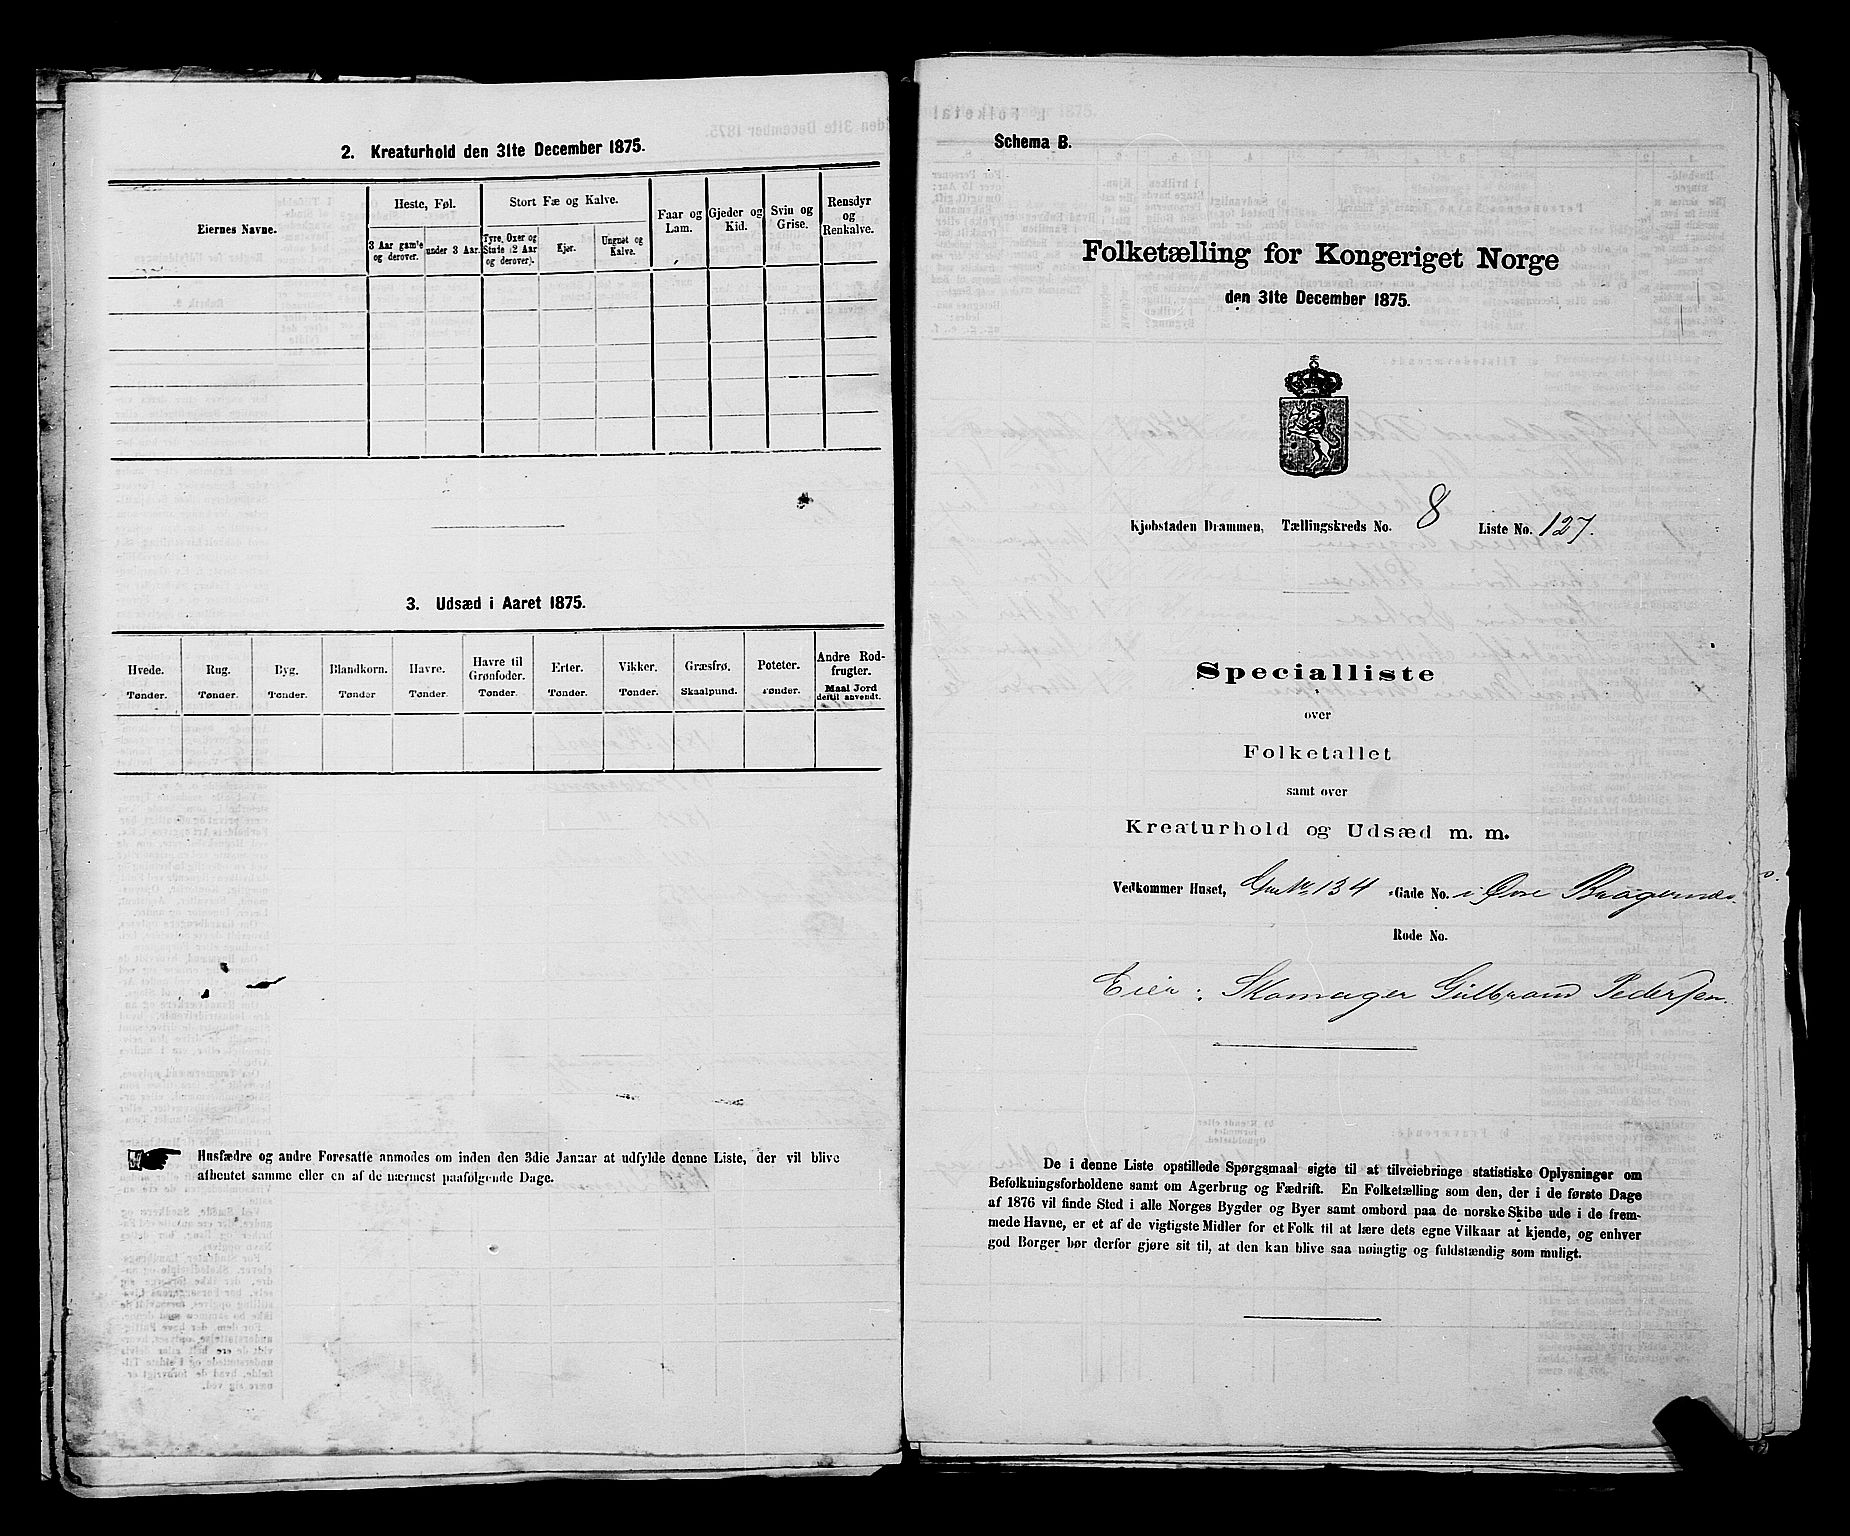 2. Kreaturhold den 31te December 1875.
Eiernes Navne.
Heste, Føl.
3 Aar gamle og derover.
under 3 Aar.
Stort Fæ og Kalve.
Tyre, Oxer og Stude (2 Aar og derover).
Kjør.
Ungnøt og Kalve.
Faar og Lam.
Gjeder og Kid.
Svin og Grise.
Rensdyr og Renkalve.
3. Udsæd i Aaret 1875.
Hvede. Tønder.
Rug. Tønder.
Byg. Tønder.
Blandkorn. Tønder
Havre. Tønder.
Havre til Grønfoder. Tønder.
Erter. Tønder.
Vikker. Tønder.
Græsfrø. Skaalpund.
Poteter. Tønder.
Andre Rodfrugter. Maal Jord dertil anvendt.
Husfædre og andre Foresatte anmodes om inden den 3die Januar at udfylde denne Liste, der vil blive
afhentet samme eller en af de nærmest paafølgende Dage.
Schema B.
Folketælling for Kongeriget Norge
den 31te December 1875.
Kjøbstaden Drammen, Tællingskreds No. 8 Liste No. 127.
Specialliste
over
Folketallet
samt over
Kreaturhold og Udsæd m. m.
Vedkommer Huset, Gr No 134 Gade No. i Øvre Bragernæs
Rode No.
Eier: Skomager Gulbrand Pedersen.
De i denne Liste opstillede Spørgsmaal sigte til at tilveiebringe statistiske Oplysninger om
Befolkningsforholdene samt om Agerbrug og Fædrift. En Folketælling som den, der i de første Dage
af 1876 vil finde Sted i alle Norges Bygder og Byer samt ombord paa de norske Skibe ude i de frem-
mede Havne, er et af de vigtigste Midler for et Folk til at lære dets egne Vilkaar at kjende, og enhver
god Borger bør derfor gjøre sit til, at den kan blive saa nøiagtig og fuldstændig som muligt.